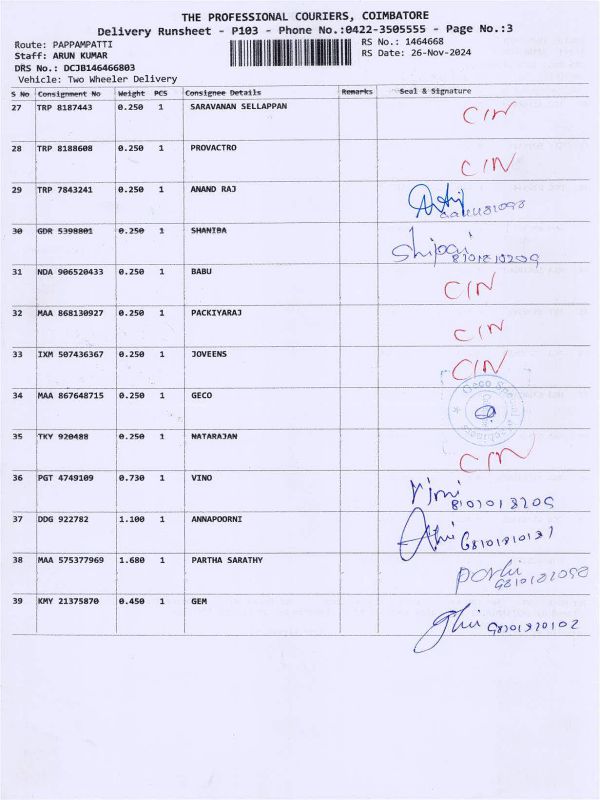 THE PROFESSIONAL COURIERS, COIMBATORE
Delivery Runsheet - P103 - Phone No.:0422-3505555 - Page No.:3
Route: PAPPAMPATTI
RS No.: 1464668
Staff: ARUN KUMAR
RS Date: 26-Nov-2024
DRS No.: DCJB146466803
Vehicle: Two Wheeler Delivery
S No Consignment No Weight PCS Consignee Details Remarks Seal & Signature
27 TRP 8187443 0.250 1 SARAVANAN SELLAPPAN CIN
28 TRP 8188608 0.250 1 PROVACTRO CIN
29 TRP 7843241 0.250 1 ANAND RAJ
30 GDR 5398801 0.250 1 SHANIBA
31 NDA 906520433 0.250 1 BABU CIN
32 MAA 868130927 0.250 1 PACKIYARAJ CIN
33 IXM 507436367 0.250 1 JOVEENS CIN
34 MAA 867648715 0.250 1 GECO Geco Special Machiners
35 TKY 920488 0.250 1 NATARAJAN CIN
36 PGT 4749109 0.730 1 VINO
37 DDG 922782 1.100 1 ANNAPOORNI
38 MAA 575377969 1.680 1 PARTHA SARATHY
39 KMY 21375870 0.450 1 GEM